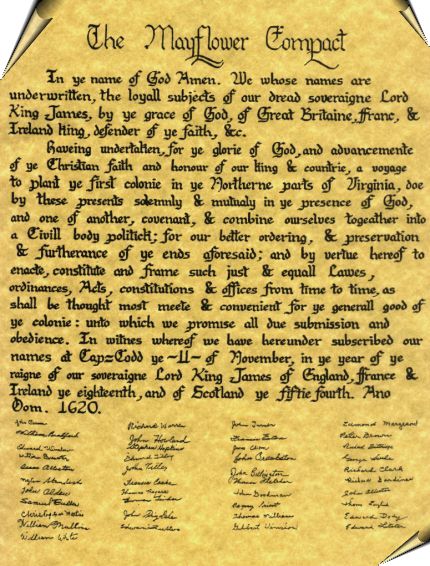 The Mayflower Compact
In ye name of God Amen. We whose names are
underwritten, the loyall subjects of our dread soveraigne Lord
King James, by ye grace of God, of Great Britaine, ffranc, &
Ireland king, defender of ye faith, &c.
Haveing undertaken, for ye glorie of God, and advancemente
of ye Christian faith and honour of our king & countrie, a voyage
to plant ye first colonie in ye Northerne parts of Virginia, doe
by these presents solemnly & mutualy in ye presence of God,
and one of another, covenant, & combine ourselves togeather into
a Civill body politick; for our better ordering, & preservation
& furtherance of ye ends aforesaid; and by vertue hereof to
enacte, constitute and frame such just & equall Lawes,
ordinances, Acts, constitutions & offices from time to time, as
shall be thought most meete & convenient for ye generall good of
ye colonie: unto which we promise all due submission and
obedience. In witnes whereof we have hereunder subscribed our
names at Cap=Codd ye ~11~ of November, in ye year of ye
raigne of our soveraigne Lord King James of England, ffrance &
Ireland ye eighteenth, and of Scotland ye fiftie fourth. Ano
Dom. 1620.
Richard Warren John Turner
William Bradford John Howland Francis Eaton Peter Brown
Edward Winslow Stephen Hopkins
John Crackston George Soule
Isaac Allerton John Tilley Richard Clark
John Billington
Myles Standish Francis Cooke Richard Gardiner
John Alden Thomas Rogers John Allerton
Samuel Fuller Thomas Tinker
Thomas Williams Edward Doty
William Mullins
William White